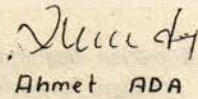 Ahmet ADA